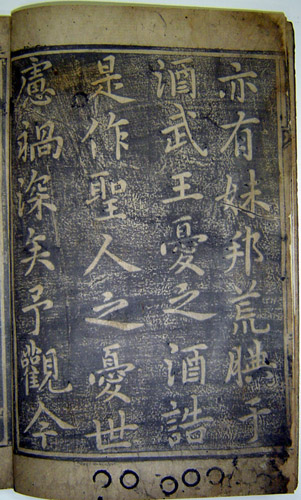 亦有妹邦荒腆于
酒武王憂之酒誥
是作聖人之憂世
慮禍深矣予觀今